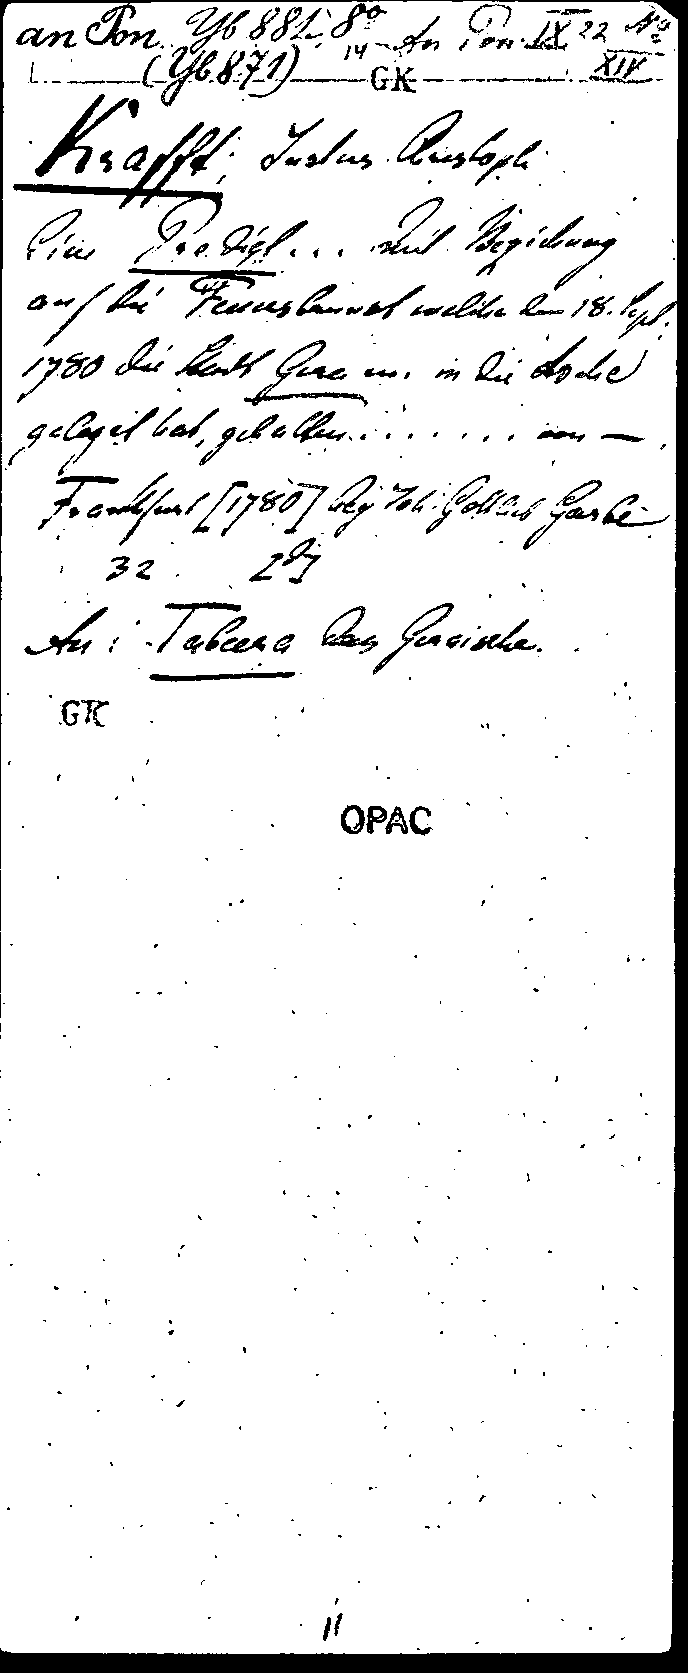 an Pon Yb 881. 8º 14 An Pon. IX 22 Nº
(Yb 871) GK XIV
Krafft, Justus Christoph
Eine Predigt ... mit Beziehung
auf die Feuersbrunst welche den 18. Sept.
1780 die Stadt Gera in die Asche
gelegt hat, gehalten ....... von —.
Frankfurt [1780] bey Joh. Gottlieb Garbe
32
An: Tabeera das Geraische.
GK
OPAC
11